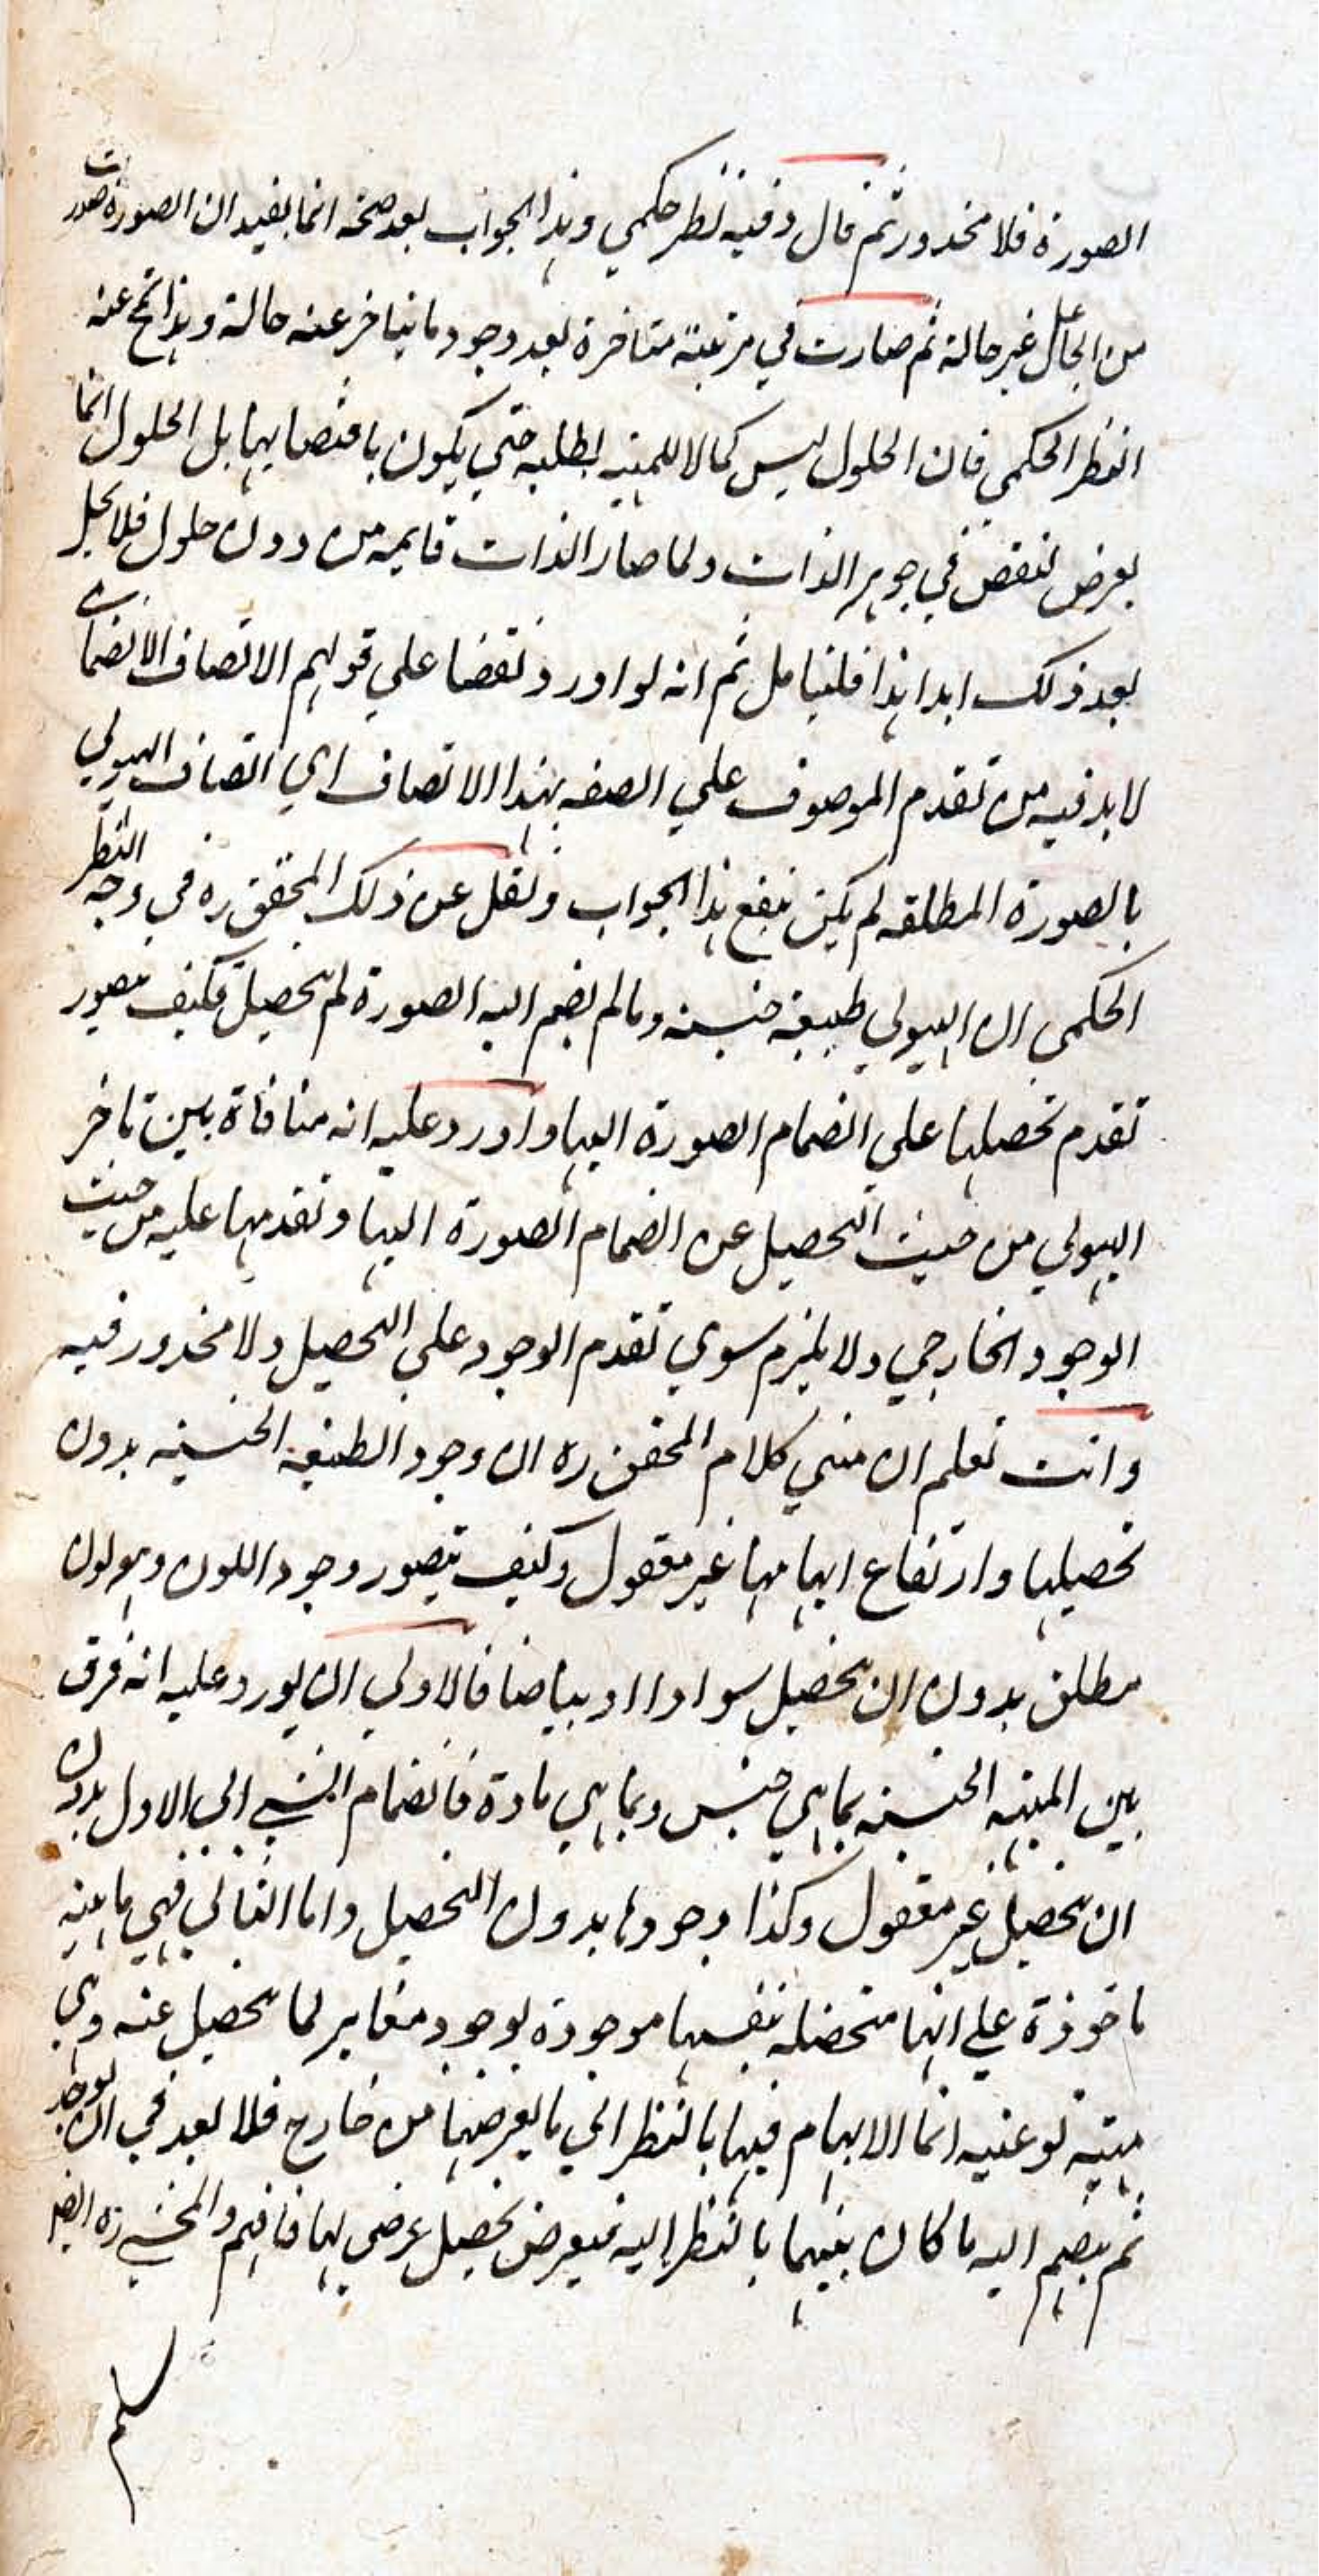 الصورة فلا محذور ثم قال وفيه نظر حكمي وهذا الجواب بعد صحته انما يفيد ان الصورة صدرت
من الجاعل غير حالة ثم صارت في مرتبة متاخرة بعد وجود ما يتاخر عنه حالة وهذا عنه
النظر الحكمي فان الحلول ليس كمالا للمهية لطلبه حتى يكون باقتضايها بل الحلول انما
يعرض لنقص في جوهر الذات ولما صار الذات قايمة من دون حلول فلا يحل
بعد ذلك ابدا هذا فليتامل ثم انه لو اورد نقضا علي قولهم الاتصاف الانضمامي
لا بد فيه من تقدم الموصوف علي الصفة بهذا الاتصاف اي اتصاف الهيولي
بالصورة المطلقه لم يكن ينفع هذا الجواب ونقل عن ذلك المحقق ره في وجه النظر
الحكمي ان الهيولي طبيعة جنسية وما لم يضم اليه الصورة لم تحصيل فكيف يتصور
تقدم تحصيلها علي انضمام الصورة اليها واورد عليه انه منافاة بين تاخر
الهيولي من حيث التحصيل عن انضمام الصورة اليها وتقدمها عليه من حيث
الوجود الخارجي ولا يلزم سوي تقدم الوجود علي التحصيل ولا محذور فيه
وانت تعلم ان مبني كلام المحقق ره ان وجود الطبيعة الجنسية بدون
تحصيلها وارتفاع ابهامها غير معقول وكيف يتصور وجود اللون وهو لون
مطلق بدون ان تحصيل سوادا او بياضا فالاولي ان يورد عليه انه فرق
بين المهية الجنسية بما هي جنس وبما هي مادة فانضمام الشي الي الاول بدون
ان تحصيل غير معقول وكذا وجودها بدون التحصيل واما الثاني فهي ماهية
ماخوذة علي انها متحصلة بنفسها موجودة بوجود مغاير لما تحصيل عنه وهي
مهية نوعية انما الابهام فيها بالنظر الي ما يعرضها من خارج فلا بعد في ان يوجد
ثم ينضم اليه ما كان بينهما بالنظر اليه فيعرض تحصيل عرضي لها فافهم والمحشي ره